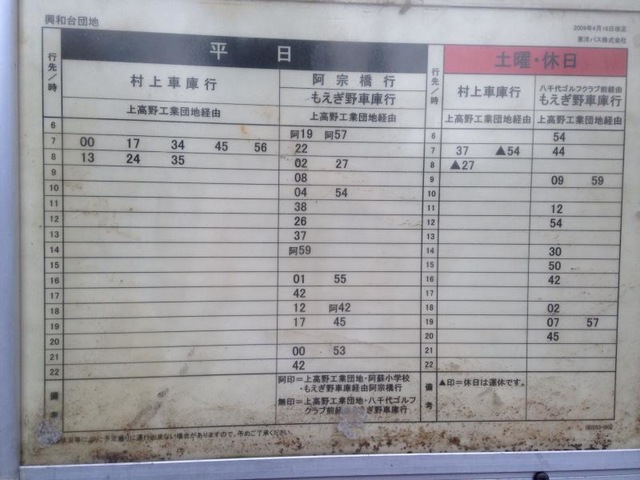 興和台団地
2009年4月16日改正
東洋バス株式会社
行先/時 平日 行先/時 土曜・休日
村上車庫行 阿宗橋行 もえぎ野車庫行 村上車庫行 八千代ゴルフクラブ前経由 もえぎ野車庫行
上高野工業団地経由 上高野工業団地経由 上高野工業団地経由 上高野工業団地経由
6 阿19 阿57 6 54
7 00 17 34 45 56 22 7 37 ▲54 44
8 13 24 35 02 27 8 ▲27
9 08 9 09 59
10 04 54 10
11 38 11 12
12 26 12 54
13 37 13
14 阿59 14 30
15 15 50
16 01 55 16 42
17 42 17
18 12 阿42 18 02
19 17 45 19 07 57
20 20 45
21 00 53 21
22 42 22
備考 阿印=上高野工業団地・阿蘇小学校
・もえぎ野車庫経由阿宗橋行
無印=上高野工業団地・八千代ゴルフ
クラブ前経由もえぎ野車庫行
備考 ▲印=休日は運休です。
運行出来ない場合がありますので、予めご了承ください。